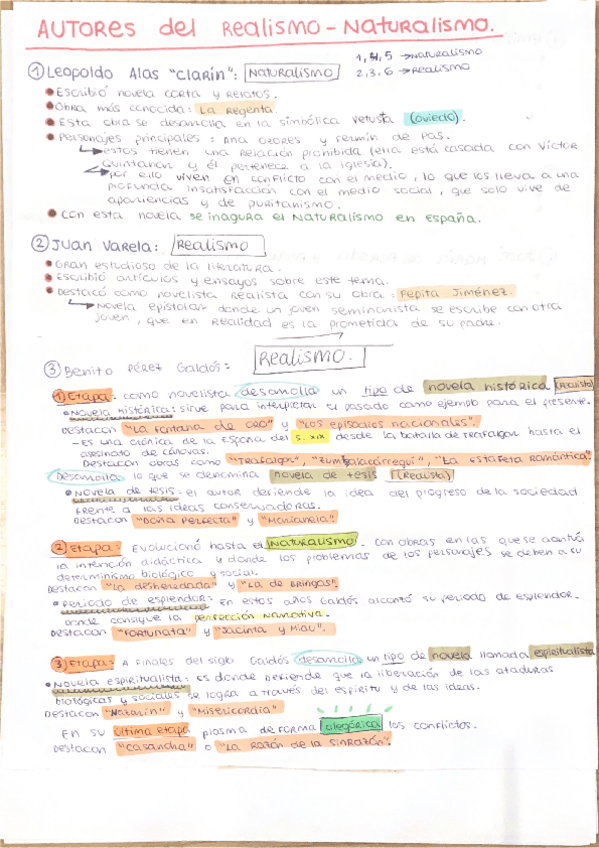 AUTORES del REALISMO - NATURALISMO.
1, 4, 5 → NATURALISMO
2, 3, 6 → REALISMO
① Leopoldo Alas "Clarín": NATURALISMO
• Escribió novela corta y relatos.
• Obra más conocida: La Regenta.
• Esta obra se desarrolla en la simbólica Vetusta (Oviedo).
• Personajes principales: Ana Ozores y Fermín de Pas.
↳ estos tienen una relación prohibida (ella está casada con Víctor
Quintanar y él pertenece a la iglesia).
↳ por ello viven en conflicto con el medio, lo que los lleva a una
profunda insatisfacción con el medio social, que solo vive de
apariencias y de puritanismo.
• Con esta novela se inagura el NATURALISMO en España.
② Juan Varela: REALISMO
• Gran estudioso de la literatura.
• Escribió artículos y ensayos sobre este tema.
• Destacó como novelista realista con su obra: Pepita Jiménez.
↳ Novela epistolar donde un joven seminarista se escribe con otra
joven, que en realidad es la prometida de su padre.
③ Benito Pérez Galdós: REALISMO.
1) Etapa: como novelista desarrolla un tipo de novela histórica (Realista)
• Novela Histórica: sirve para interpretar el pasado como ejemplo para el presente.
Destacan "La Fontana de Oro" y "Los episodios nacionales".
- Es una crónica de la España del s. XIX desde la batalla de Trafalgar hasta el
asesinato de Cánovas.
Destacan obras como "Trafalgar", "Zumalacárregui", "La estafeta romántica"
Desarrolla lo que se denomina novela de tesis (Realista)
• Novela de tesis: el autor defiende la idea del progreso de la sociedad
frente a las ideas conservadoras.
Destacan "Doña Perfecta" y "Marianela".
2) Etapa: Evolucionó hasta el NATURALISMO. Con obras en las que se acentúa
la intención didáctica y donde los problemas de los personajes se deben a su
determinismo biológico y social.
Destacan "La desheredada" y "La de Bringas".
• Periodo de esplendor: En estos años Galdós alcanzó su periodo de esplendor.
Donde consigue la perfección narrativa.
Destacan "Fortunata" y "Jacinta y Miau".
3) Etapa: A finales del siglo Galdós desarrolla un tipo de novela llamada espiritualista
• Novela espiritualista: es donde defiende que la liberación de las ataduras
biológicas y sociales se logra a través del espíritu y de las ideas.
Destacan "Nazarín" y "Misericordia"
En su última etapa plasma de forma alegórica los conflictos.
Destacan "Casandra" o "La razón de la sinrazón".